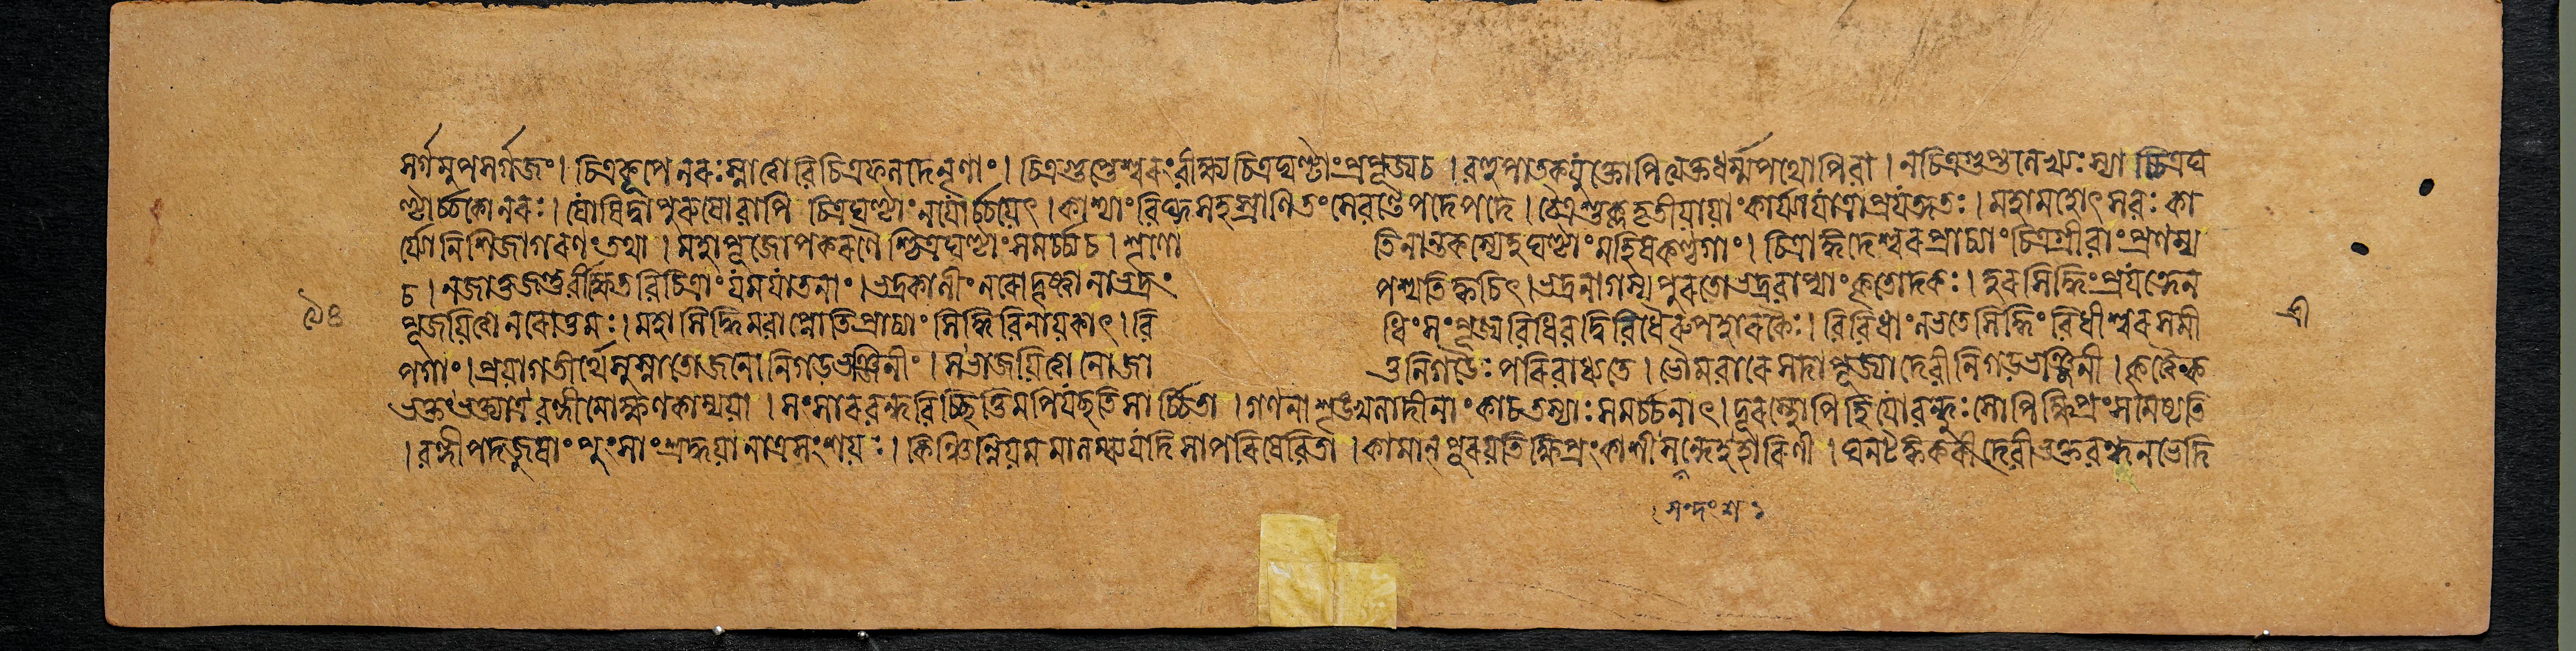 সর্গমুপসর্গজং। চিত্রকূপে নরঃ স্নাত্বা বিচিত্রফলদে নৃণাং। চিত্রগুপ্তেশ্বরং বীক্ষ্য চিত্রঘণ্টাং প্রপূজ্য চ। বহুপাতকযুক্তোপি ত্যক্তধর্ম্মপথোপি বা। ন চিত্রগুপ্তলেখ্যঃ স্যাচ্চিত্রঘ
ণ্টার্চ্চকো নরঃ। যোষিদ্বা পুরুষো বাপি চিত্রঘণ্টাং ন যোর্চ্চয়েৎ। কাশ্যাং বিঘ্নসহস্রাণি তং সেবন্তে পদে পদে। চৈত্রশুক্লতৃতীয়ায়াং কার্য্যা যাত্রা প্রযত্নতঃ। মহামহোৎসবঃ কা
র্য্যো নিশি জাগরণং তথা। মহাপূজোপকরণৈশ্চিত্রঘণ্টাং সমর্চ্চ্য চ। শৃণো তি নান্তকস্যেহ ঘণ্টাং মহিষকণ্ঠগাং। চিত্রাঙ্গদেশ্বরপ্রাচ্যাং চিত্রগ্রীবাং প্রণম্য
চ। ন জাতু জন্তুর্বীক্ষেত বিচিত্রাং যমযাতনাং। ভদ্রকালীং নরো দৃষ্ট্বা নাভদ্রং পশ্যতি ক্বচিৎ। ভদ্রনাগস্য পুরতো ভদ্রবাপ্যাং কৃতোদকঃ। হরসিদ্ধিং প্রযত্নেন
পূজয়িত্বা নরোত্তমঃ। মহাসিদ্ধিমবাপ্নোতি প্রাচ্যাং সিদ্ধিবিনায়কাৎ। বি ধিং সংপূজ্য বিধিবদ্বিবিধৈরুপহারকৈঃ। বিবিধাং লভতে সিদ্ধিং বিধীশ্বরসমী
পগাং। প্রয়াগতীর্থে সুস্নাতো জনো নিগড়ভঞ্জিনীং। সভাজয়িত্বা নো জা তু নিগড়ৈঃ পরিবাধ্যতে। ভৌমবারে সদা পূজ্যা দেবী নিগড়ভঞ্জিনী। কৃত্বৈক
ভক্তং ভক্ত্যাত্র বন্দীমোক্ষণকাম্যয়া। সংসারবন্ধবিচ্ছিত্তিমপি যচ্ছতি সার্চ্চিতা। গণনা শৃঙ্খলাদীনাং কা চ তস্যাঃ সমর্চ্চনাৎ। দূরস্থোপি হি যো বন্ধুঃ সোপি ক্ষিপ্রং সমেষ্যতি
। বন্দীপদজুষাং পুংসাং শ্রদ্ধয়া নাত্র সংশয়ঃ। কিঞ্চিন্নিয়মমালম্ব্য যদি সা পরিষেবিতা। কামান্ পূরয়তি ক্ষিপ্রং কাশীসন্দেহহারিণী। ঘনটঙ্ককরা দেবী ভক্তবন্ধনভেদি
সন্দংশ ১